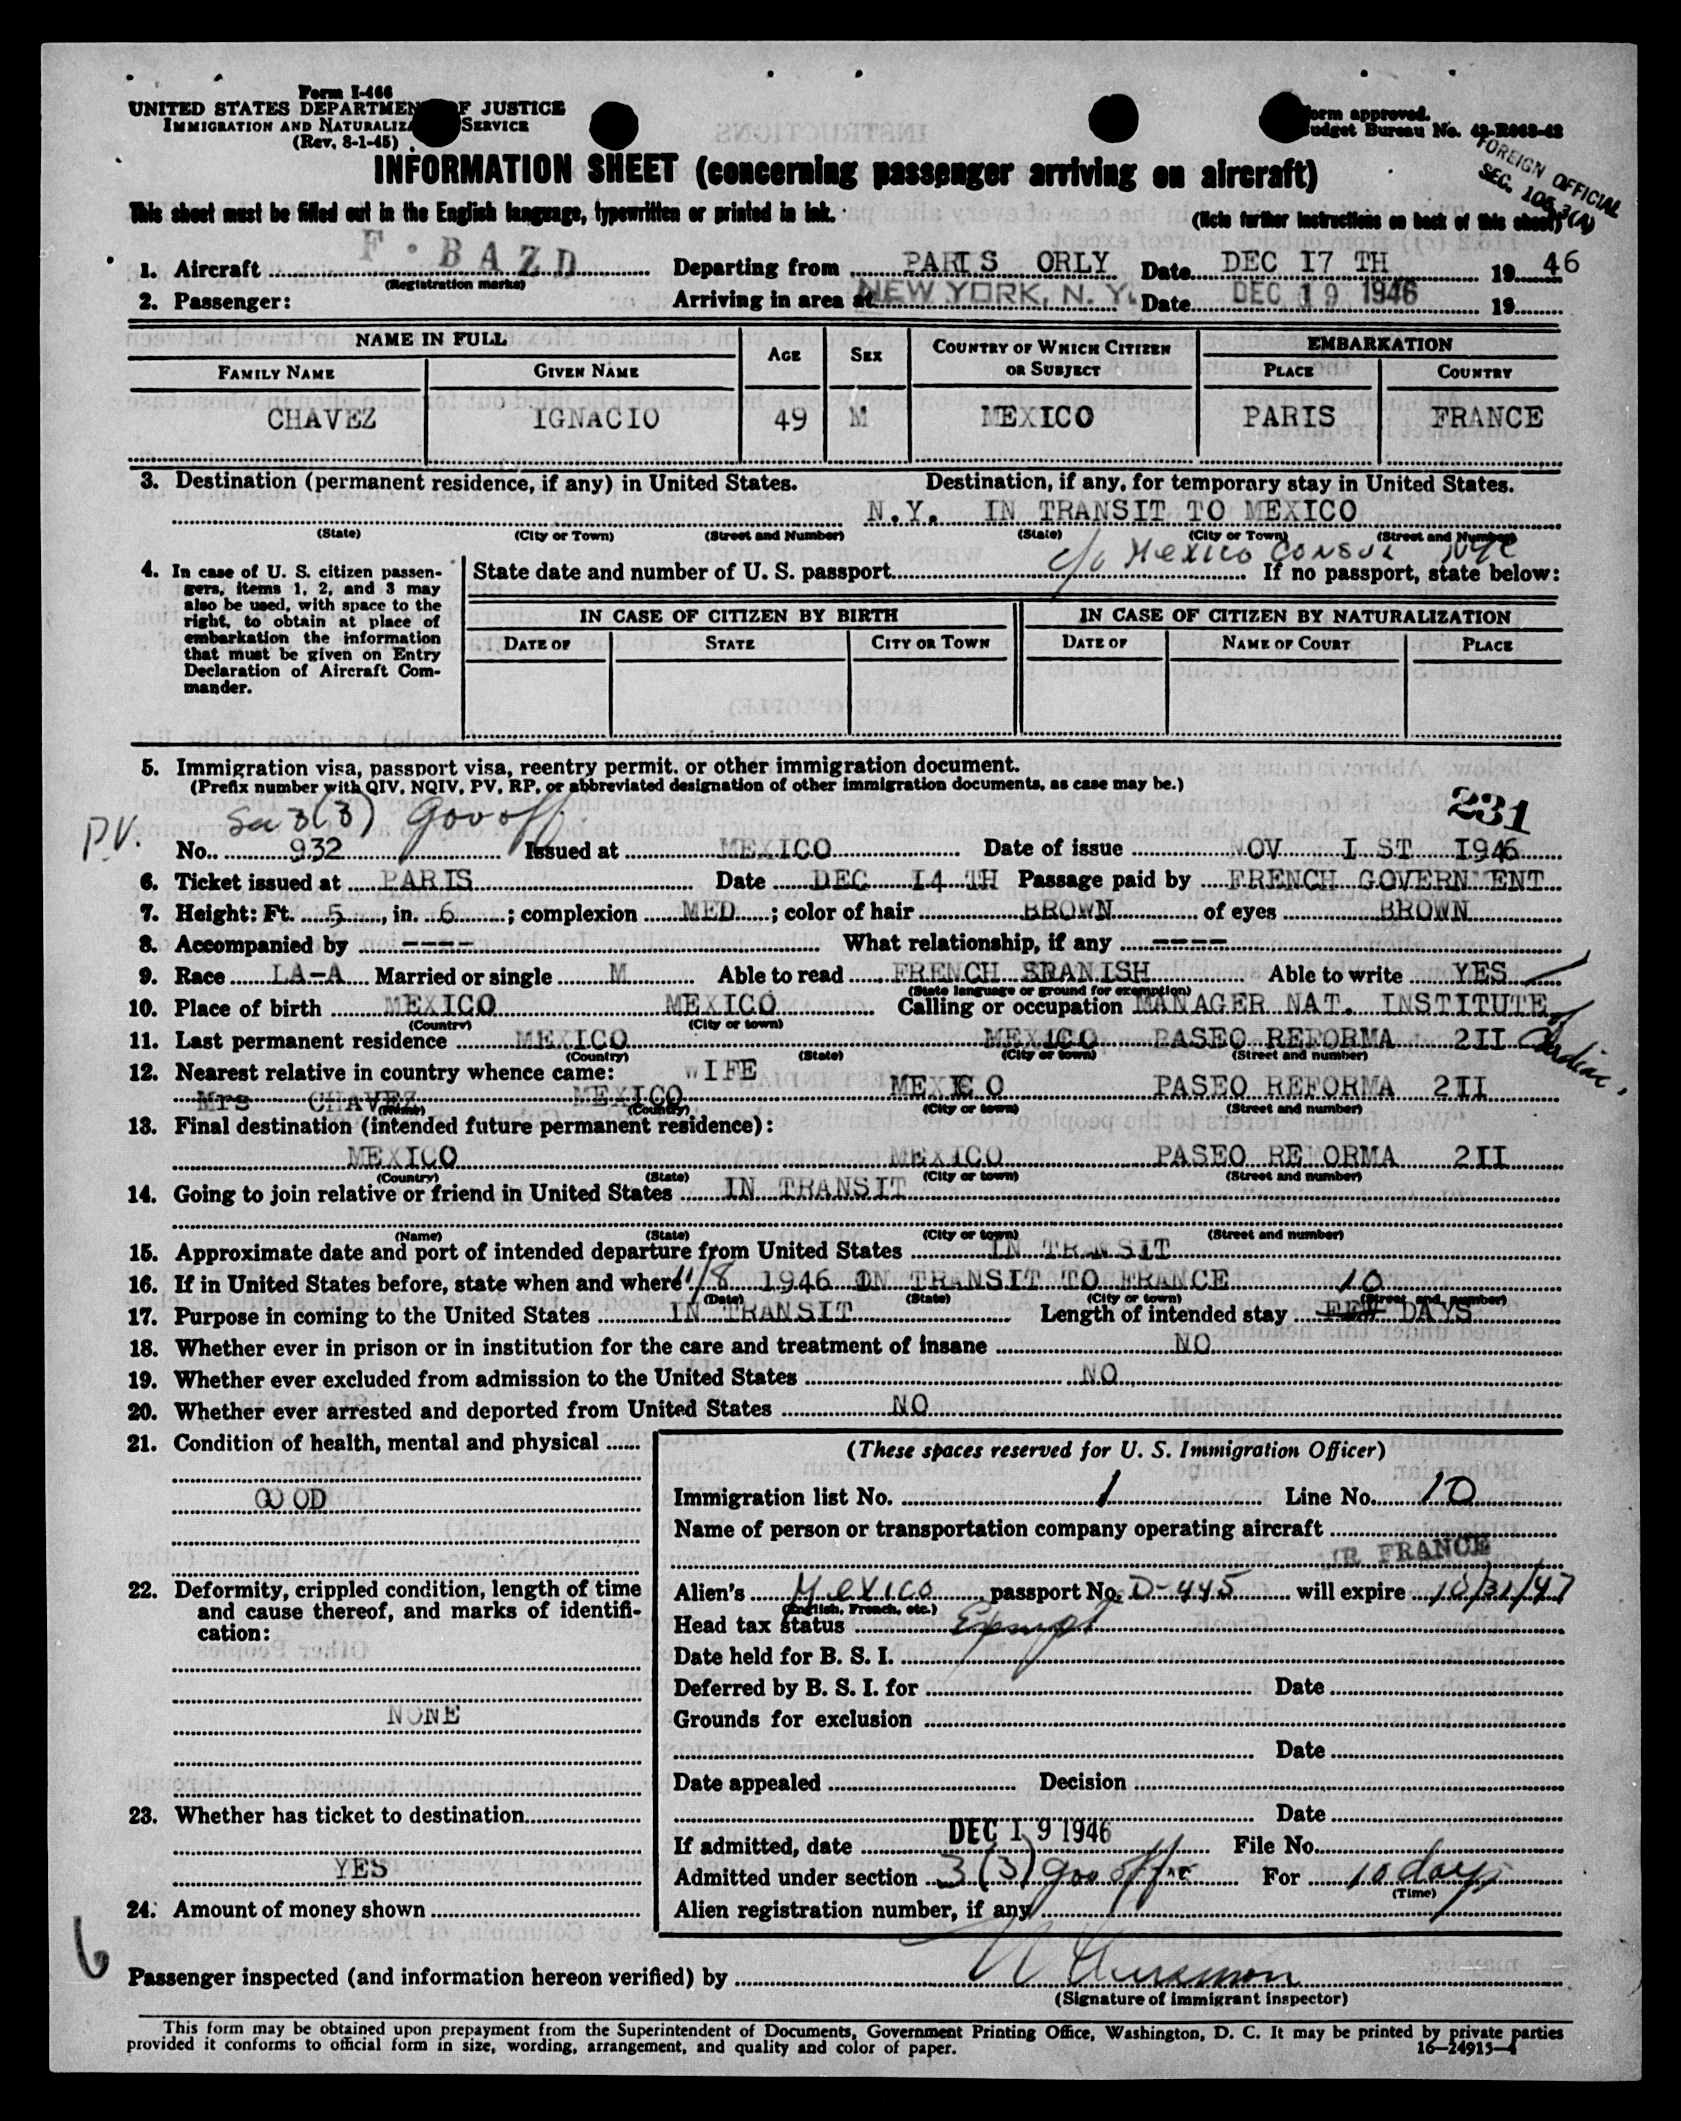 Form I-466
UNITED STATES DEPARTMENT OF JUSTICE
IMMIGRATION AND NATURALIZATION SERVICE
(Rev. 8-1-45)
Form approved.
Budget Bureau No. 43-R063-42
FOREIGN OFFICIAL
SEC. 105.3(A)
INFORMATION SHEET (concerning passenger arriving on aircraft)
This sheet must be filled out in the English language, typewritten or printed in ink. (Note further instructions on back of this sheet)
1. Aircraft F·BAZD Departing from PARIS ORLY Date DEC I7 TH 19 46
(Registration marks)
2. Passenger: Arriving in area at NEW YORK, N. Y. Date DEC 19 1946 19
NAME IN FULL AGE SEX COUNTRY OF WHICH CITIZEN OR SUBJECT EMBARKATION
FAMILY NAME GIVEN NAME PLACE COUNTRY
CHAVEZ IGNACIO 49 M MEXICO PARIS FRANCE
3. Destination (permanent residence, if any) in United States. Destination, if any, for temporary stay in United States.
N.Y. IN TRANSIT TO MEXICO
(State) (City or Town) (Street and Number) (State) (City or Town) (Street and Number)
c/o Mexico Consul NYC
4. In case of U. S. citizen passen- State date and number of U. S. passport If no passport, state below:
gers, items 1, 2, and 3 may
also be used, with space to the
right, to obtain at place of
embarkation the information
that must be given on Entry
Declaration of Aircraft Com-
mander.
IN CASE OF CITIZEN BY BIRTH IN CASE OF CITIZEN BY NATURALIZATION
DATE OF STATE CITY OR TOWN DATE OF NAME OF COURT PLACE
5. Immigration visa, passport visa, reentry permit, or other immigration document.
(Prefix number with QIV, NQIV, PV, RP, or abbreviated designation of other immigration documents, as case may be.)
231
P.V. Sec 3(3) Gov off.
No. 932 Issued at MEXICO Date of issue NOV I ST I946
6. Ticket issued at PARIS Date DEC I4 TH Passage paid by FRENCH GOVERNMENT
7. Height: Ft. 5, in. 6; complexion MED; color of hair BROWN of eyes BROWN
8. Accompanied by ---- What relationship, if any ----
9. Race LA-A Married or single M Able to read FRENCH SPANISH Able to write YES
(State language or ground for exemption)
10. Place of birth MEXICO MEXICO Calling or occupation MANAGER NAT. INSTITUTE of Cardiac,
(Country) (City or town)
11. Last permanent residence MEXICO MEXICO PASEO REFORMA 2II
(Country) (State) (City or town) (Street and number)
12. Nearest relative in country whence came: WIFE
Mrs CHAVEZ MEXICO MEXICO PASEO REFORMA 2II
(Name) (Country) (City or town) (Street and number)
13. Final destination (intended future permanent residence):
MEXICO MEXICO PASEO REFORMA 2II
(Country) (State) (City or town) (Street and number)
14. Going to join relative or friend in United States IN TRANSIT
(Name) (State) (City or town) (Street and number)
15. Approximate date and port of intended departure from United States IN TRANSIT
16. If in United States before, state when and where 11/8 1946 IN TRANSIT TO FRANCE
(Date) (State) (City or town) (Street and number)
17. Purpose in coming to the United States IN TRANSIT Length of intended stay 10 FEW DAYS
18. Whether ever in prison or in institution for the care and treatment of insane NO
19. Whether ever excluded from admission to the United States NO
20. Whether ever arrested and deported from United States NO
21. Condition of health, mental and physical
GOOD
22. Deformity, crippled condition, length of time
and cause thereof, and marks of identifi-
cation:
NONE
23. Whether has ticket to destination
YES
24. Amount of money shown
(These spaces reserved for U. S. Immigration Officer)
Immigration list No. 1 Line No. 10
Name of person or transportation company operating aircraft
AIR FRANCE
Alien's Mexico passport No. D-445 will expire 10/31/47
(English, French, etc.)
Head tax status Exempt
Date held for B. S. I.
Deferred by B. S. I. for Date
Grounds for exclusion
Date
Date appealed Decision
Date
If admitted, date DEC 19 1946 File No.
Admitted under section 3(3) gov off For 10 days
(Time)
Alien registration number, if any
6
Passenger inspected (and information hereon verified) by
(Signature of immigrant inspector)
This form may be obtained upon prepayment from the Superintendent of Documents, Government Printing Office, Washington, D. C. It may be printed by private parties
provided it conforms to official form in size, wording, arrangement, and quality and color of paper. 16—24915-1